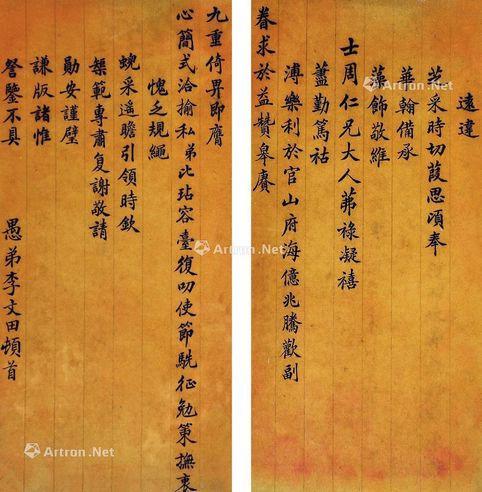 遠違
芝采時切葭思頃奉
華翰備承
藻飾敬維
士周仁兄大人茀祿凝禧
藎勤篤祜
溥樂利於官山府海億兆騰歡副
眷求於益贊皋賡
九重倚畀即膺
心簡式洽揄私弟比玷容臺復叨使節駪征勉策撫衷
愧乏規繩
蜺采遥瞻引領時欽
榘範專肅复謝敬請
勛安謹璧
謙版諸惟
詧鑒不具
愚弟李文田頓首
Artron.Net
Artron.Net
Artron.Net
Artron.Net